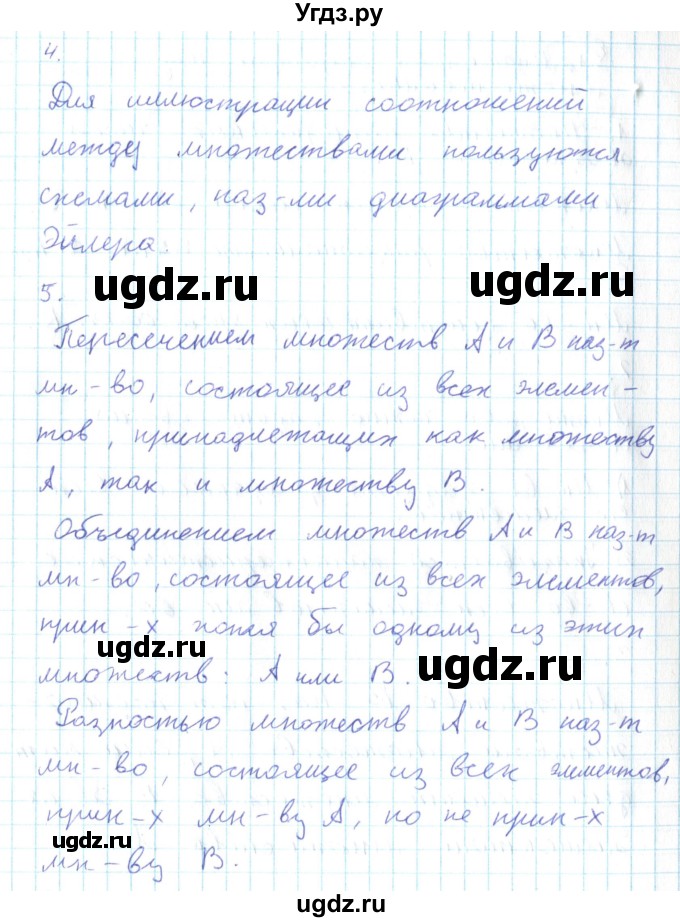 Угдз.ру
4.
Для иллюстрации соотношений
между множествами пользуются
схемами, наз-ми диаграммами
Эйлера.
ugdz.ru ugdz.ru
5.
Пересечением множеств А и В наз-т
мн-во, состоящее из всех элемен-
тов, принадлежащих как множеству
А, так и множеству В.
Объединением множеств А и В наз-т
мн-во, состоящее из всех элементов,
прин-х хотя бы одному из этих
ugdz.ru ugdz.ru
множеств: А или В.
Разностью множеств А и В наз-т
мн-во, состоящее из всех элементов,
прин-х мн-ву А, но не прин-х
ugdz.ru
мн-ву В.
ugdz.ru